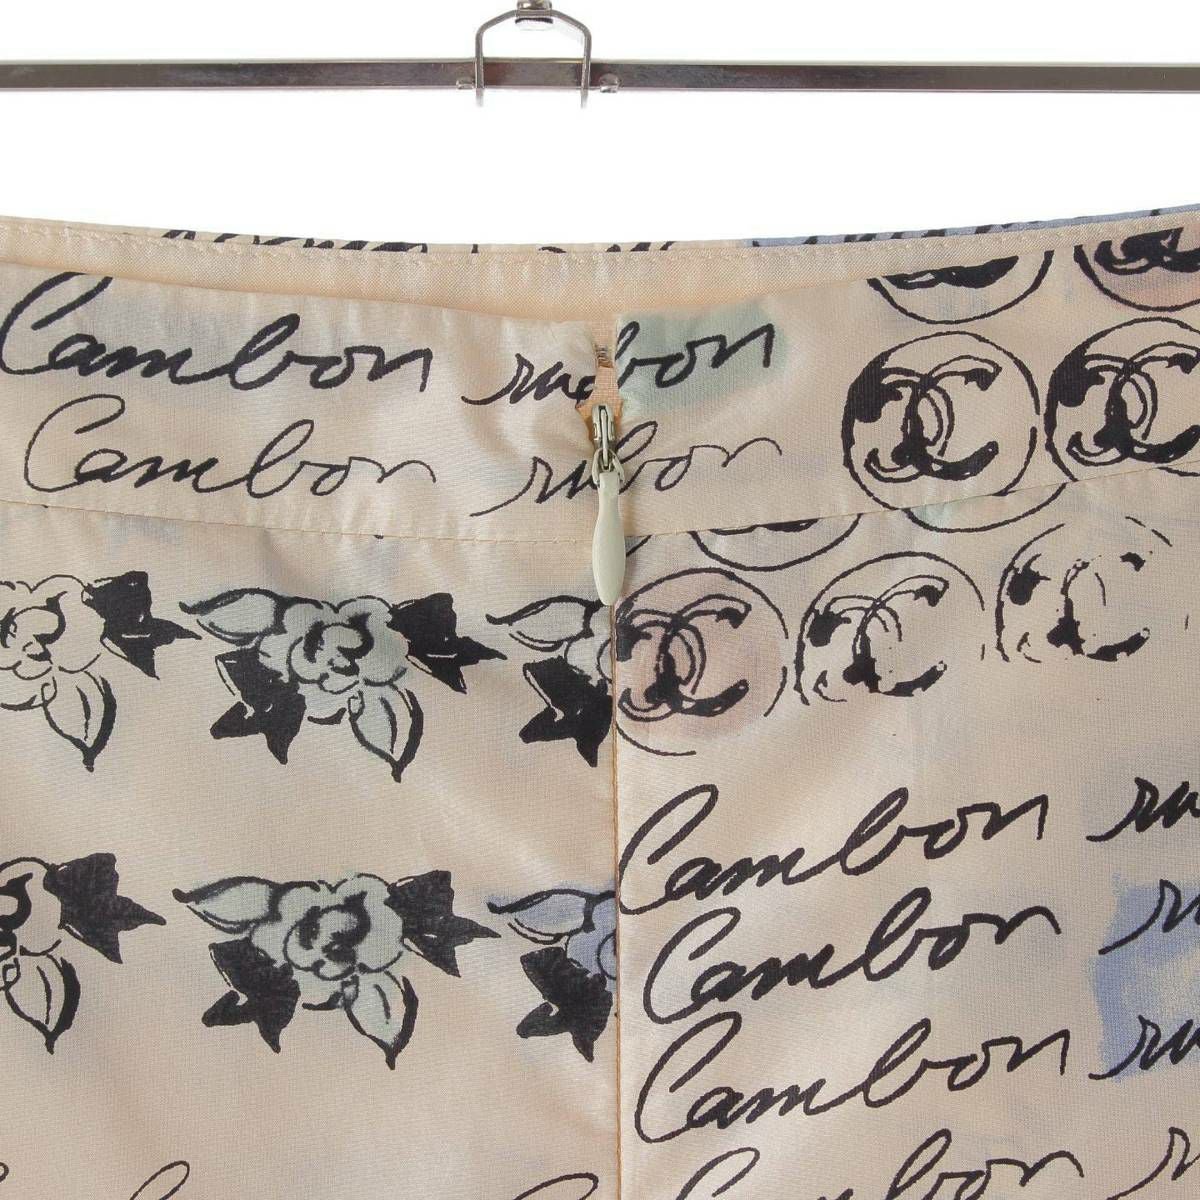 Cambon rubon
Cambon rubon
Cambon ru
Cambon
Cambon ru
Cambon